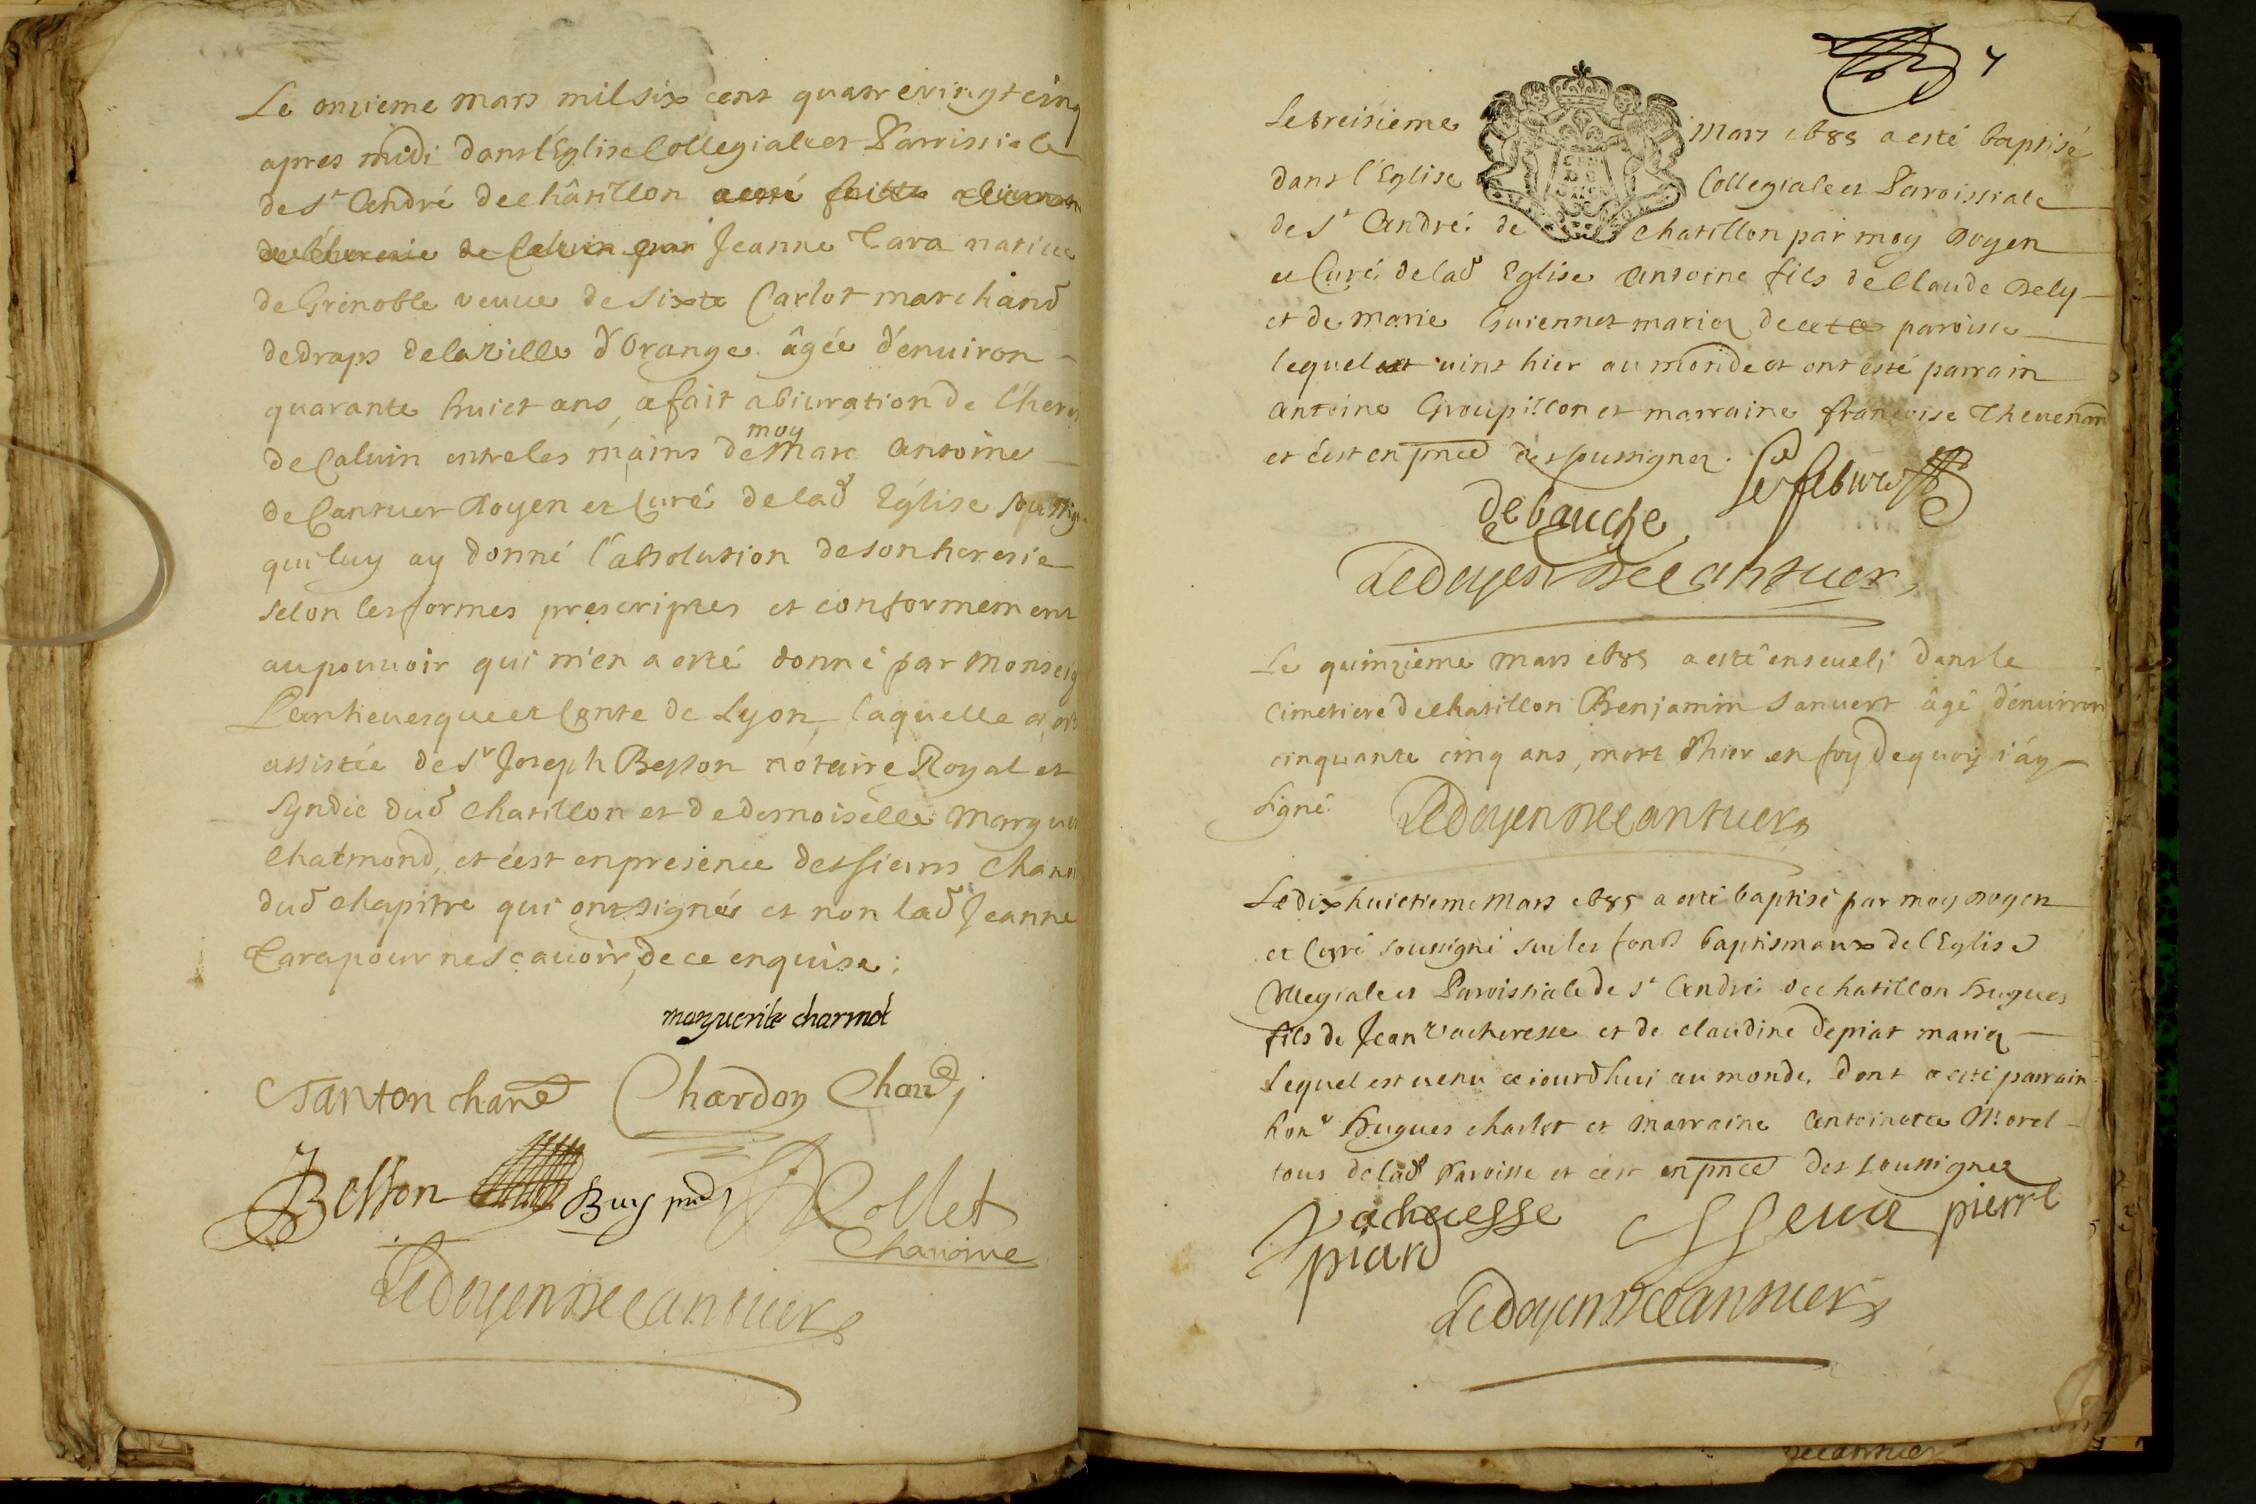 Le onzieme mars mil six cent quatre vingt cinq
apres midi dans l'Eglise Collegiale et Parrissiale
de St André de châtillon a esté faitte abiuration
de l'heresie de Calvin par Jeanne Tara natiue
de Grinoble veuue de Sixte Carlot marchand
de draps de la Ville d'Orange âgée d'enuiron
quarante huict ans, a fait abiuration de l'heresi
de Caluin entre les mains de moy Marc Antoine
de Cantuer Doyen et Curé de lad Eglise soussig
qui luy ay donné l'absolution de son heresie
selon les formes prescriptes et conformement
au pouuoir qui m'en a esté donné par Monseig
L'archeuesque et Conte de Lyon, laquelle a, esté
assistée de Sr Joseph Besson notaire Royal et
Syndic dud Chatillon et de demoiselle Margue
Chatmond, et c'est en presence des sieurs Chan
dud chapitre qui ont signés et non lad Jeanne
Tara pour ne sçauoir, de ce enquise;
marguerite charmot
Tanton chane Chardon Chan
JBesson Buy pnt Collet
Chanoine
Le doyen De Cantuer
7
Le treisieme Mars 1685 a esté baptisé
dans l'Eglise Collegiale et Paroissiale
de St André de chatillon par moy Doyen
et Curé de lad Eglise Antoine fils de Claude Dely
et de Marie Guiennet mariez de cete paroisse
lequel est uint hier au monde et ont esté parrain
Antoine Groupillon et marraine françoise Theuenard
et c'est en pnce des soussignez.
Lefebure
debauche
Le doyen De Cantuer
Le quinzieme Mars 1685 a esté enseueli dans le
cimetiere de chatillon Benjamin Sanuert âgé d'enuiron
cinquante cinq ans, mort d'hier en foy de quoy i'ay
signé. Le doyen De Cantuer
Le dix huictieme Mars 1685 a esté baptisé par moy Doyen
et Curé soussigné sur les fonds baptismaux de l'Eglise
Collegiale et Paroissiale de St André de chatillon Hugues
fils de Jean Vacheresse et de claudine Depiat mariez
Lequel est uenu ce iourdhui au monde, Dont a esté parrain
honr Hugues charlet et Marraine Antoinette Morel
tous de lad Paroisse et c'est en pnce des soussignez
Vacheresse pierre
piard
Le doyen De Cantuer